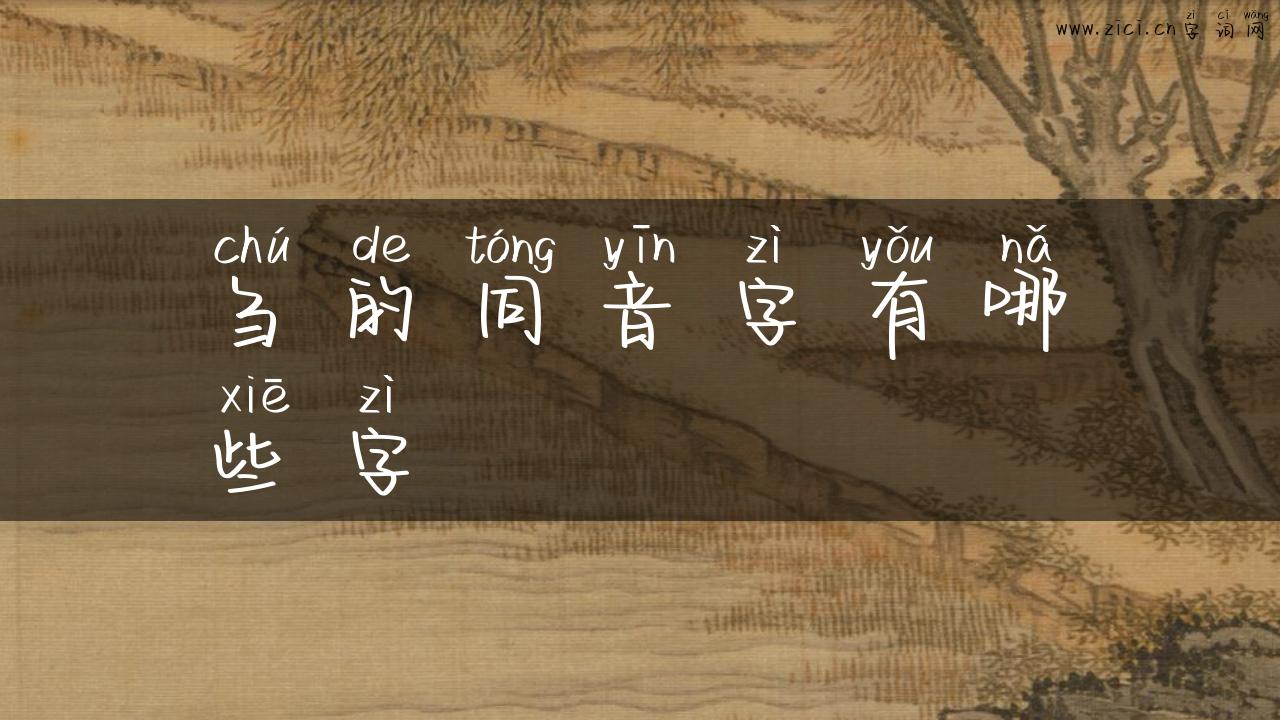 zì cí wǎng
www.zici.cn字词网
chú de tóng yīn zì yǒu nǎ
刍的同音字有哪
xiē zì
些字